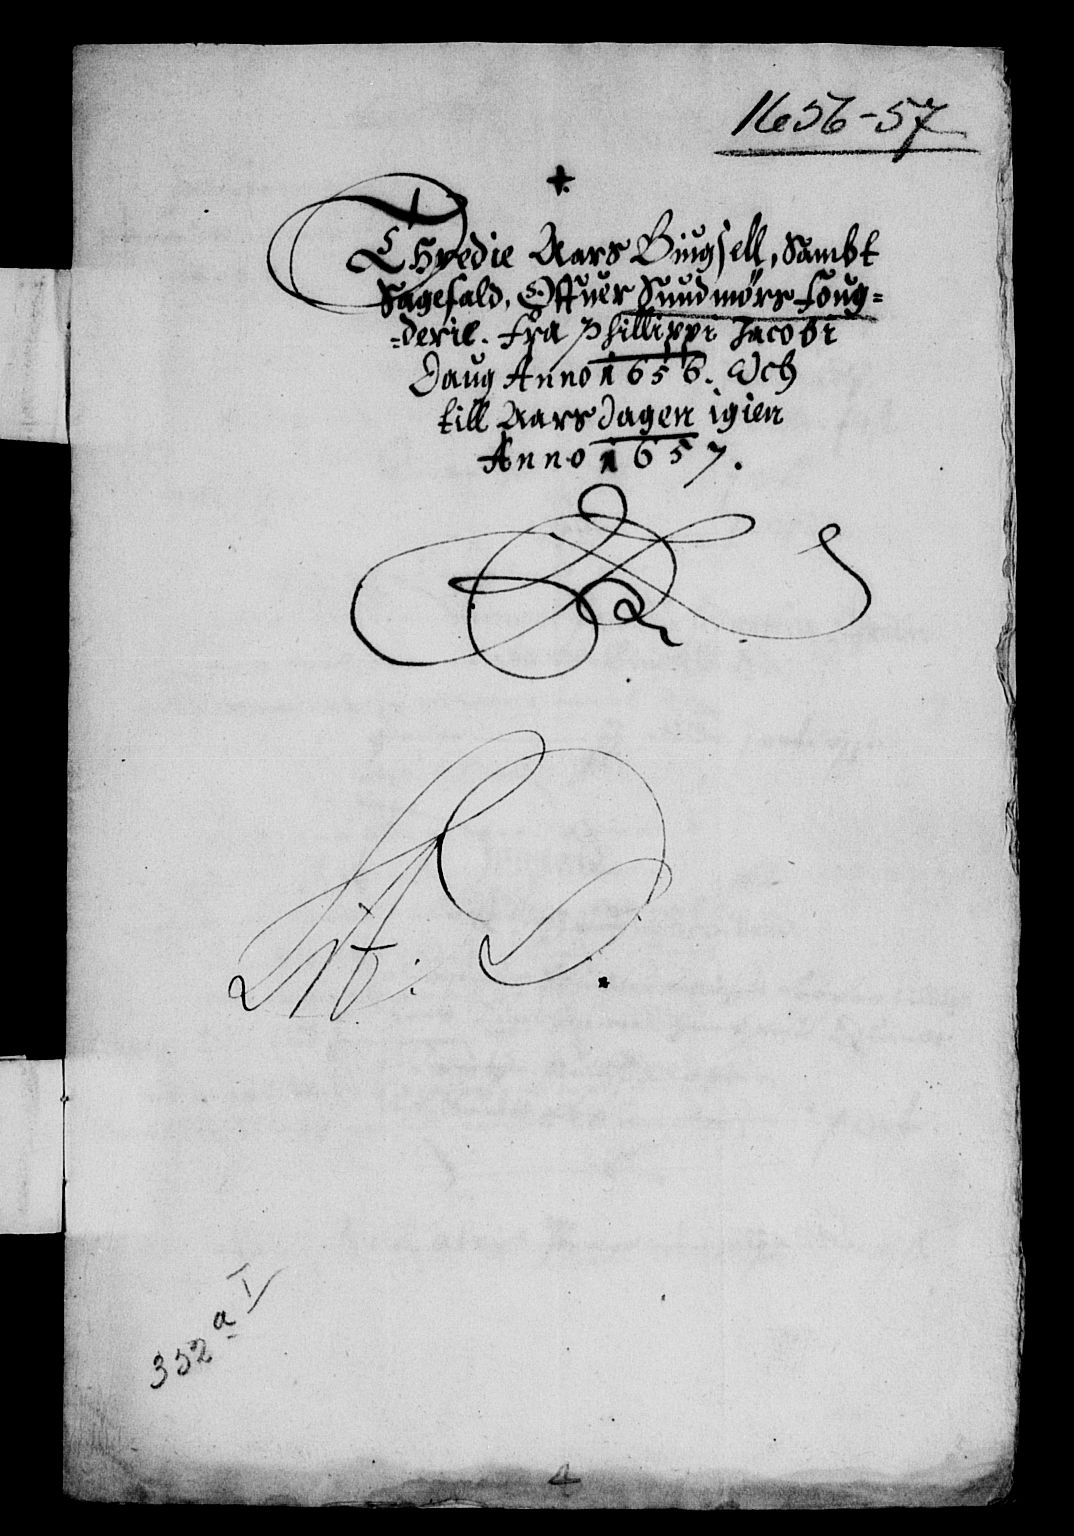 1656-57
Thredie Aars Bÿugsell, Sambt
Sagefald, Offuer Sundmørs foug=
=derie. Fra Phillippi Jacobi
Daug Anno 1656. Och
till Aarsdagen igien
Anno 1657.
Lit: D.
352 a I
4